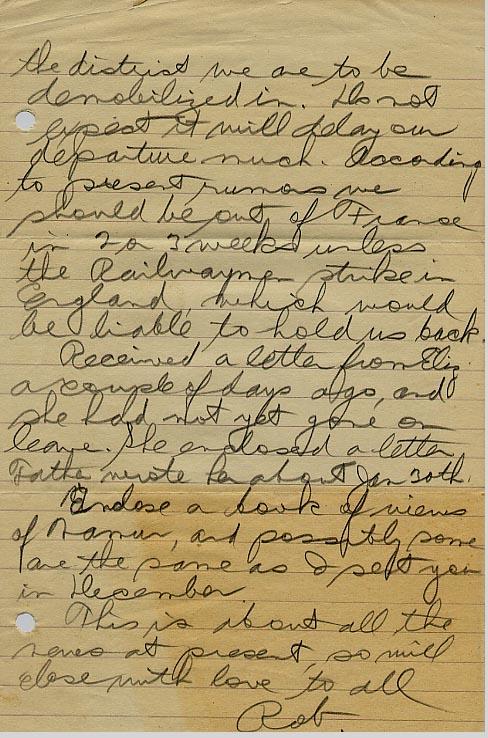 the district we are to be
demobilized in. Do not
expect it will delay our
departure much. According
to present rumors we
should be out of France
in 2 or 3 weeks unless
the Railwaymen strike in
England, which would
be liable to hold us back.
Received a letter from Eliz.
a couple of days ago, and
she had not yet gone on
leave. She enclosed a letter
Father wrote her about Jan 30th.
Enclose a book of views
of Namur, and possibly some
are the same as I sent you
in December
This is about all the
news at present, so will
close with love to all
Rob.